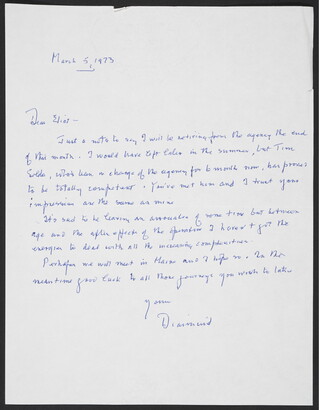 March 5, 1973
Dear Eliot -
Just a note to say I will be retiring from the agency the end
of this month. I would have left later in the summer, but Tim
who's been in charge of the agency for 6 months now, has proved
to be totally competent. You've met him and I trust your
impressions are the same as mine.
It's sad to be leaving an of some time but between
age and the after effects of the operation I haven't got the
energies to deal with all the complications
Perhaps we will meet in and I hope so. In the
meantime good luck to all those journeys you wish to take
Yours
Diarmuid